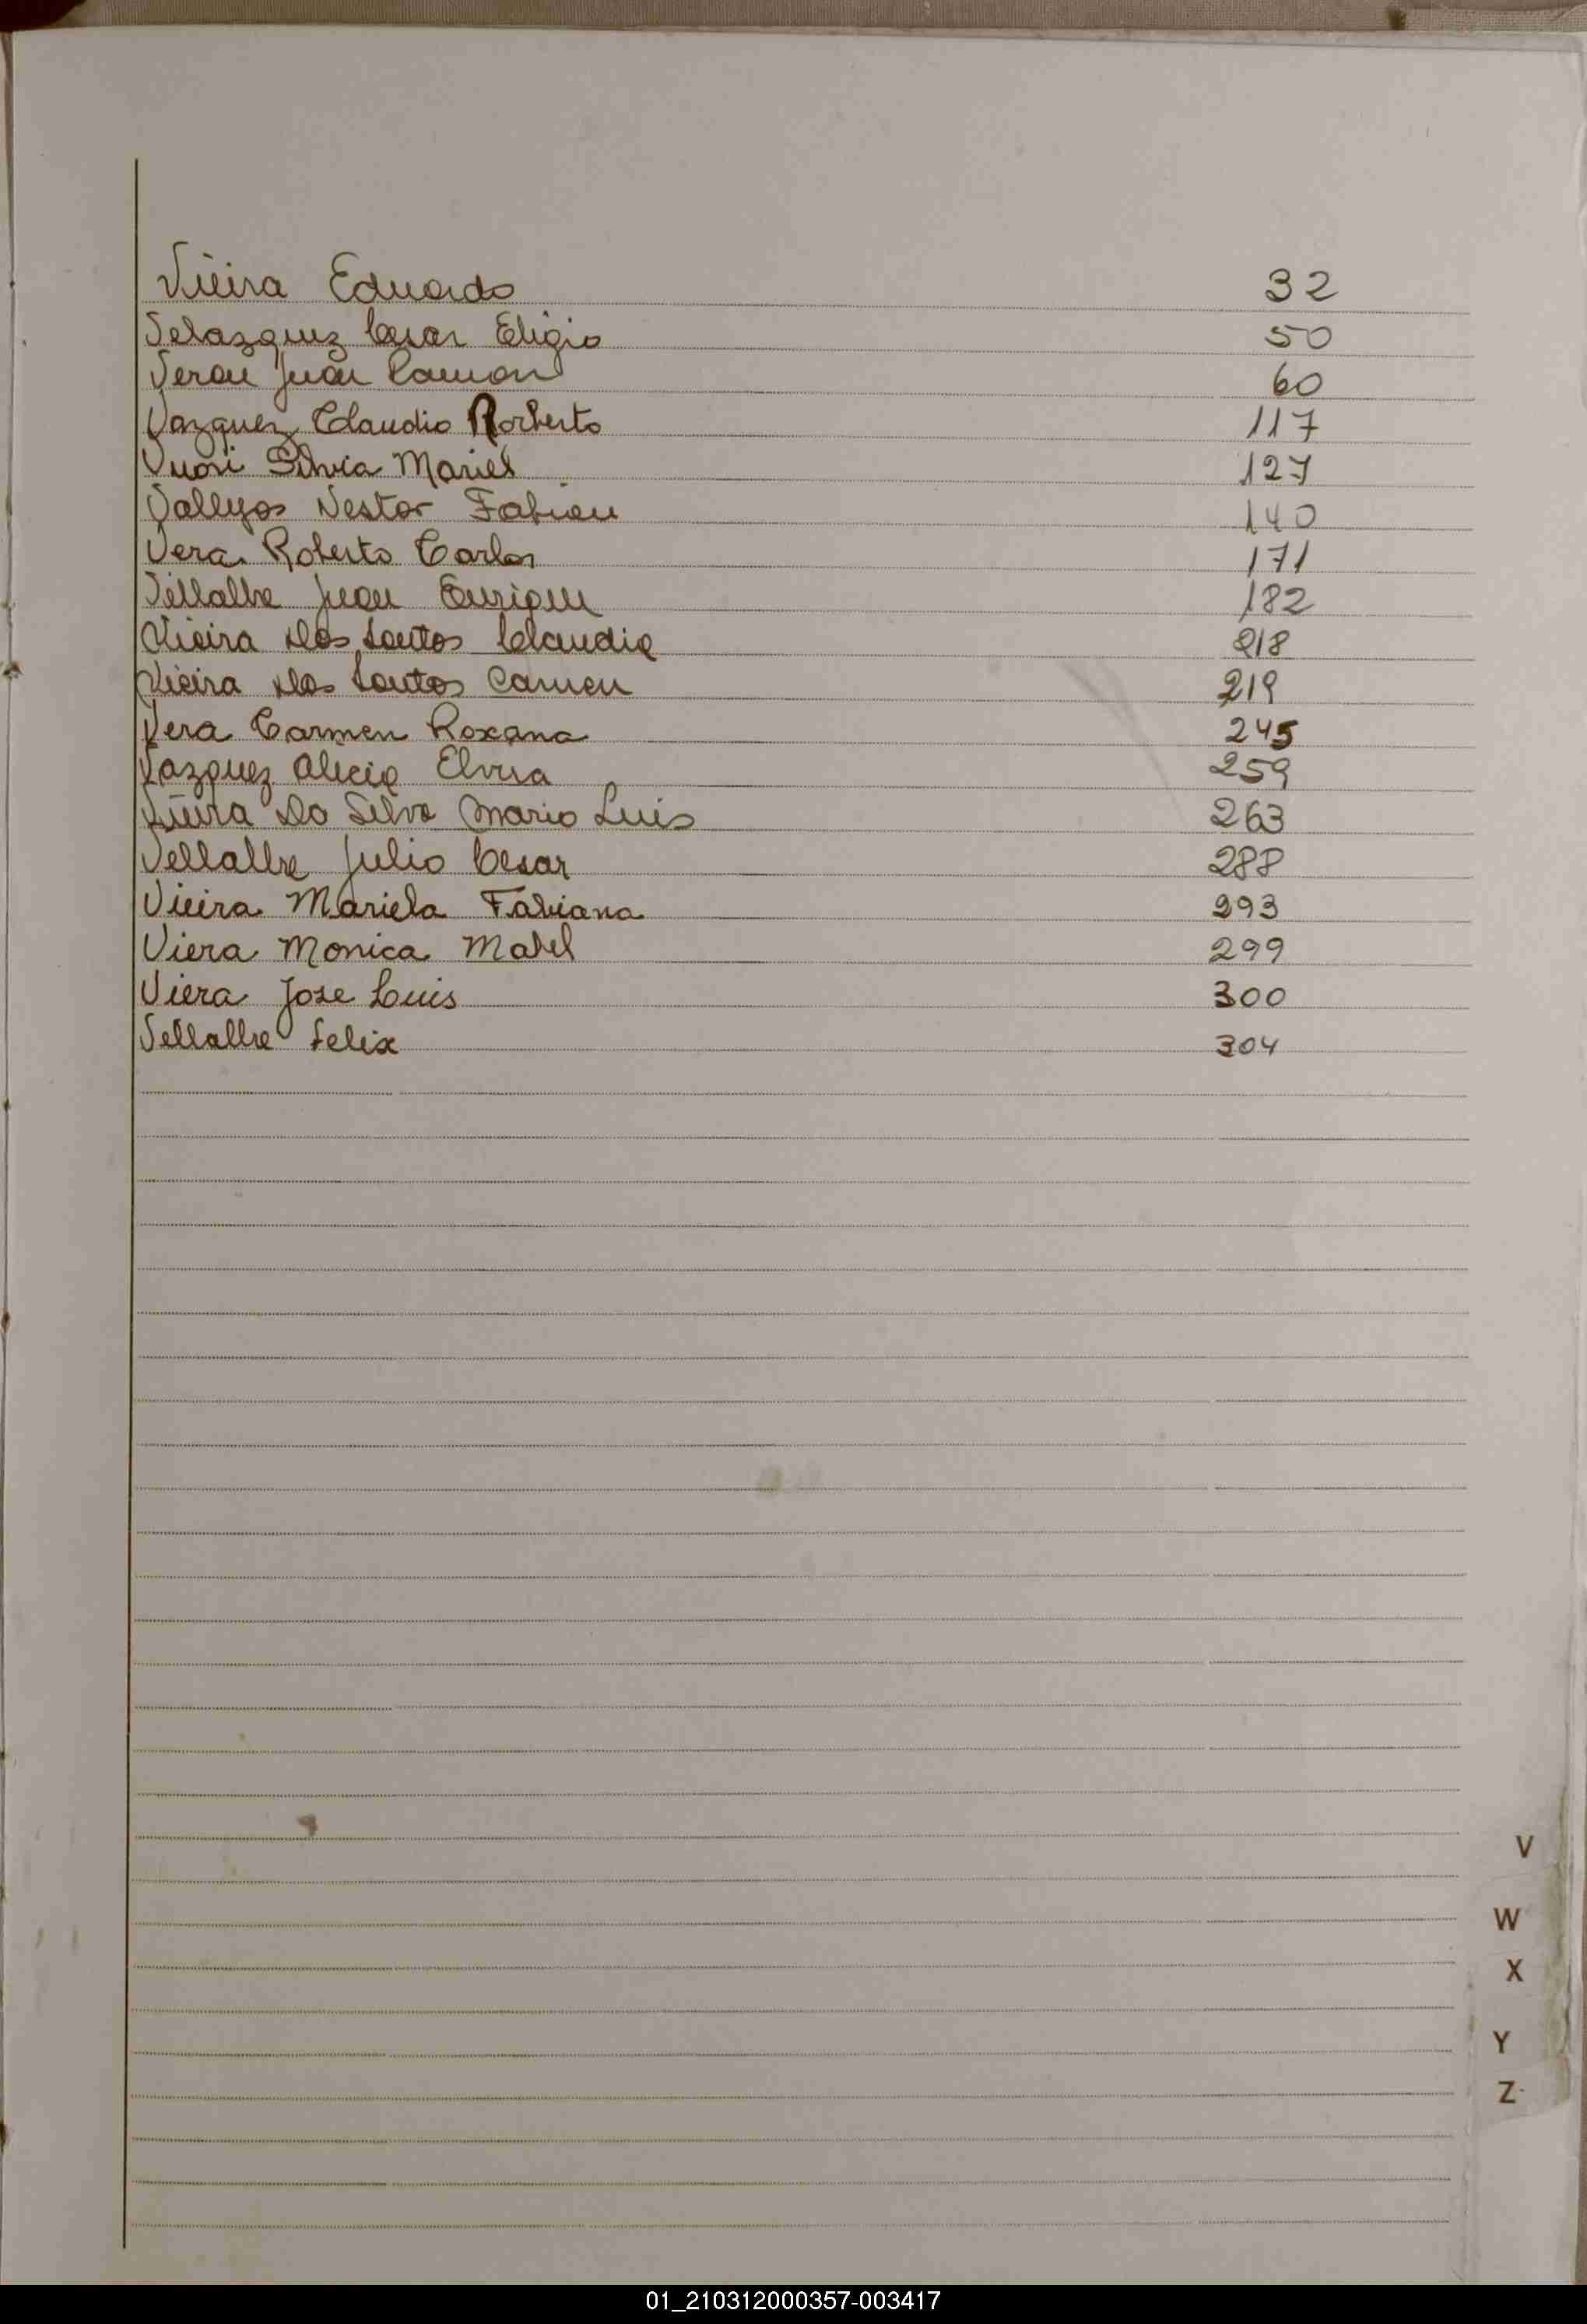 Vieira Eduardo 32
Velazquez Cesar Eligio 50
Veron Juan Ramon 60
Vazquez Claudio Norberto 117
Vuori Silvia Mariel 127
Vallejos Nestor Fabian 140
Vera Roberto Carlos 171
Villalba Juan Enrique 182
Vieira Dos Santos Claudia 218
Vieira Dos Santos Carmen 219
Vera Carmen Roxana 245
Vazquez Alicia Elvira 259
Vieira Da Silva Mario Luis 263
Villalba Julio Cesar 288
Vieira Mariela Fabiana 293
Viera Monica Mabel 299
Viera Jose Luis 300
Villalba Felix 304
V
W
X
Y
Z
01_210312000357-003417